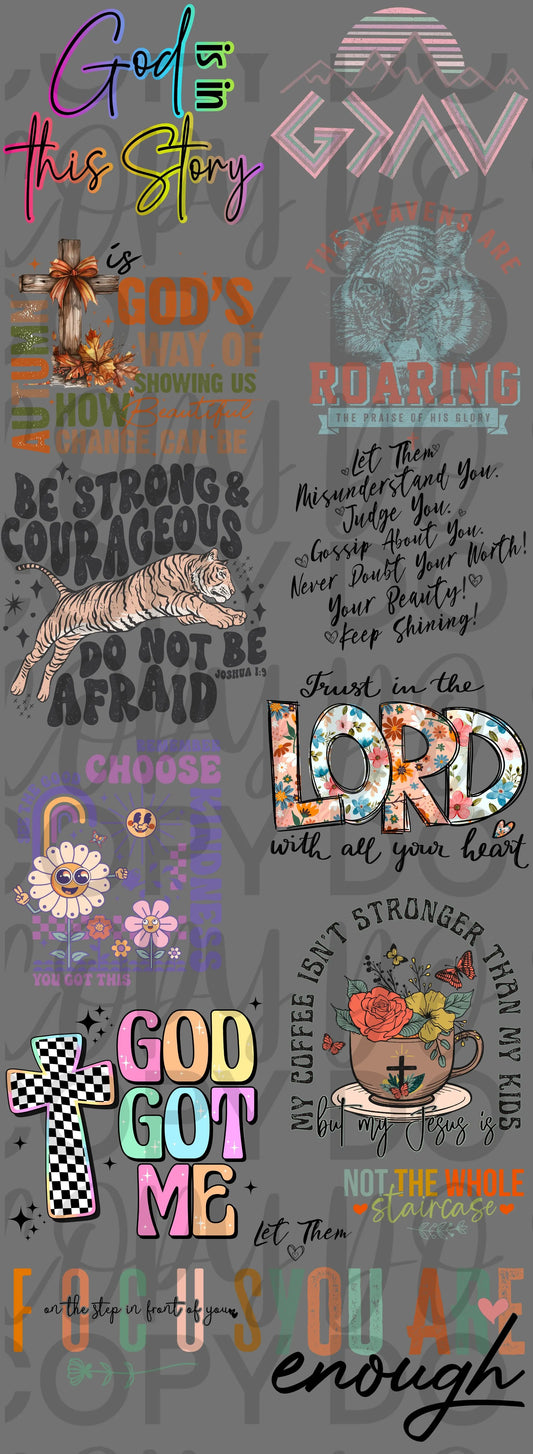 God
is in
this Story
G>∧V
AUTUMN
is
GOD'S
WAY OF
SHOWING US
HOW Beautiful
CHANGE CAN BE
THE HEAVENS ARE
ROARING
THE PRAISE OF HIS GLORY
BE STRONG &
COURAGEOUS
DO NOT BE
AFRAID
JOSHUA 1:9
Let Them
Misunderstand You.
Judge You.
Gossip About You.
Never Doubt Your Worth!
Your Beauty!
Keep Shining!
Trust in the
LORD
with all your heart
REMEMBER
CHOOSE
KINDNESS
YOU GOT THIS
MY COFFEE ISN'T STRONGER THAN MY KIDS
but my Jesus is
GOD
GOT
ME
NOT THE WHOLE
staircase
Let Them
FOCUS
on the step in front of you
YOU ARE
enough
COPY DO